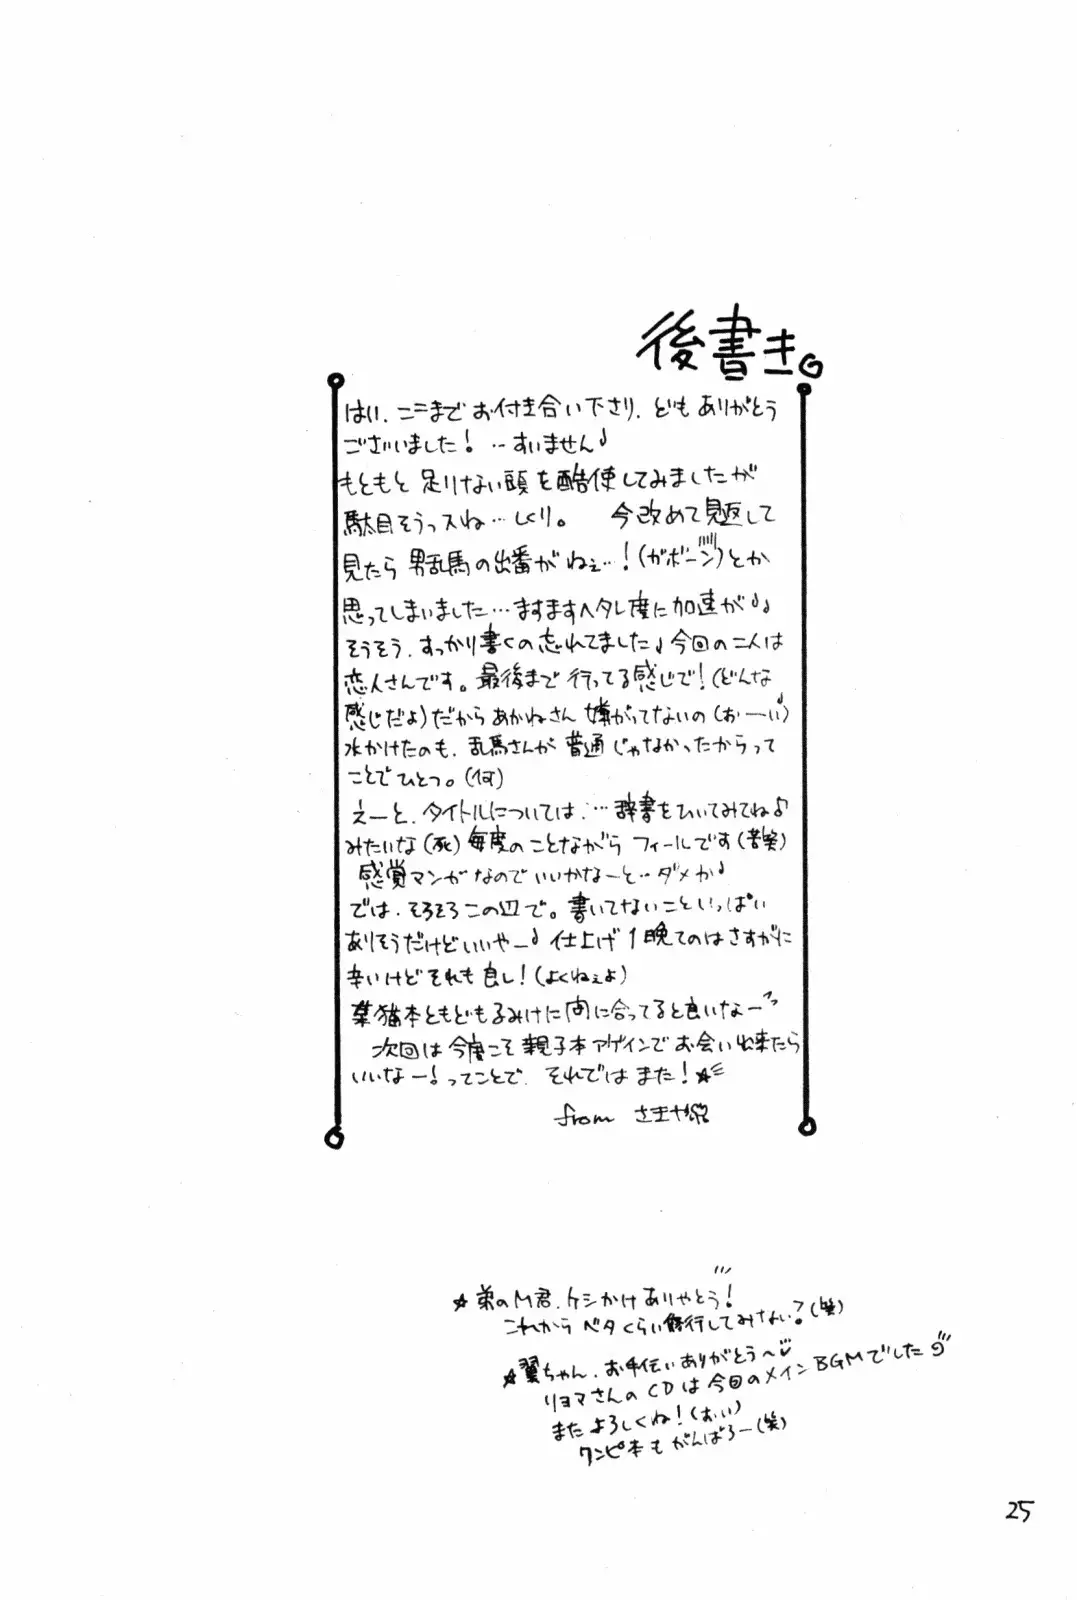 後書き。
はい、ここまでお付き合い下さり、どもありがとう
ございました！…すいません♪
もともと足りない頭を酷使してみましたが
駄目そうっスね…しくり。 今改めて見返して
見たら男乱馬の出番がねぇ…！(ガボーン)とか
思ってしまいました…ますますヘタレ度に加速が♪♪
そうそう、すっかり書くの忘れてました♪今回の二人は
恋人さんです。最後まで行ってる感じで！(どんな
感じだよ)だからあかねさん嫌がってないの(おーい)
水かけたのも、乱馬さんが普通じゃなかったからって
ことでひとつ。(何)
えーと、タイトルについては…辞書をひいてみてね♪
みたいな(死)毎度のことながらフィールです(苦笑)
感覚マンガなのでいいかなーと…ダメか♪
では、そろそろこの辺で。書いてないこといっぱい
ありそうだけどいいやー♪仕上げ1晩てのはさすがに
辛いけどそれも良し！(よくねぇよ)
葉猫本ともどもるみけに間に合ってると良いなー
次回は今度こそ親子本アゲインでお会い出来たら
いいなー！ってことで、それではまた！☆
from さきや
☆弟のM君、ケシかけありやとう！
これからベタくらい修行してみない？(笑)
☆翼ちゃん、お手伝いありがとう〜♡
リョマさんのCDは今回のメインBGMでした
またよろしくね！(おい)
ワンピ本もがんばろー(笑)
25